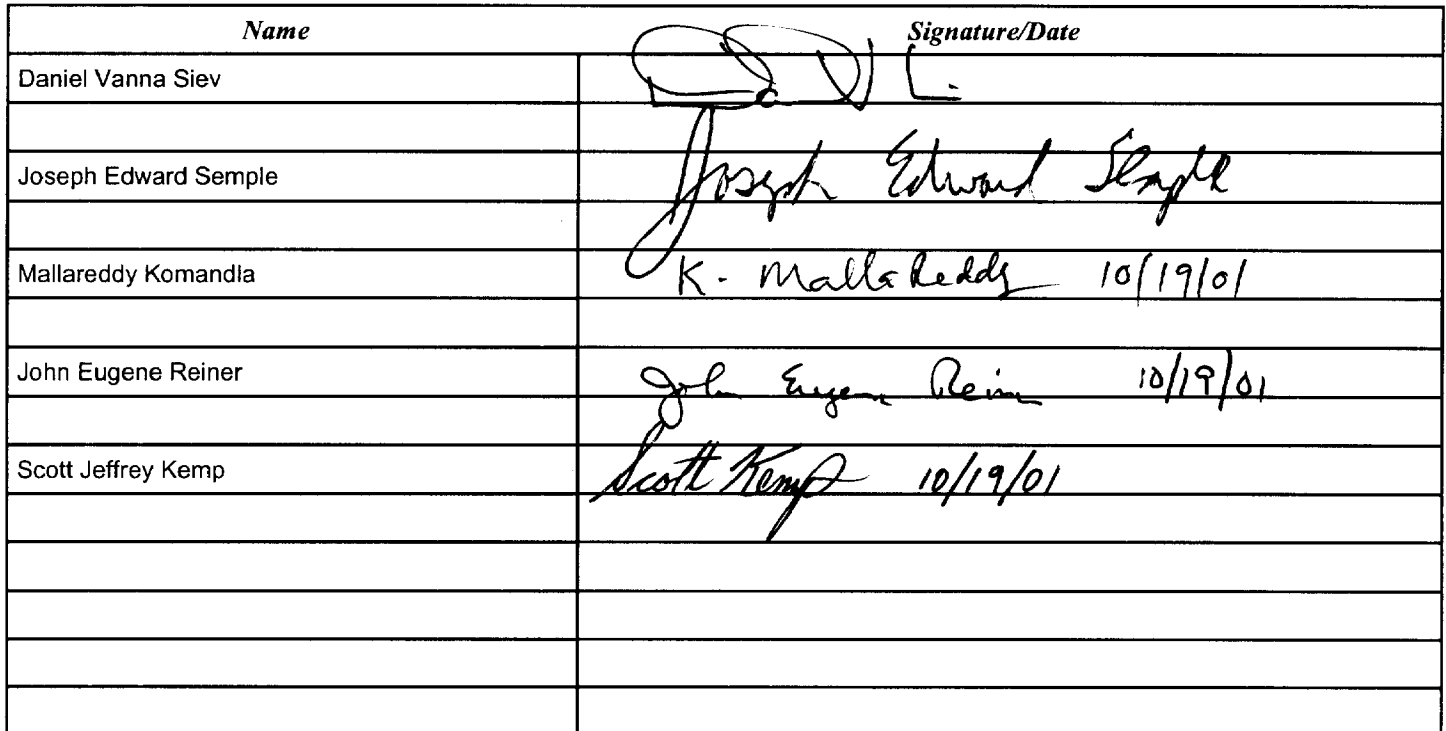 Name Signature/Date
Daniel Vanna Siev
Joseph Edward Semple Joseph Edward Semple
Mallareddy Komandla K. MallaReddy 10/19/01
John Eugene Reiner John Eugene Reiner 10/19/01
Scott Jeffrey Kemp Scott Kemp 10/19/01